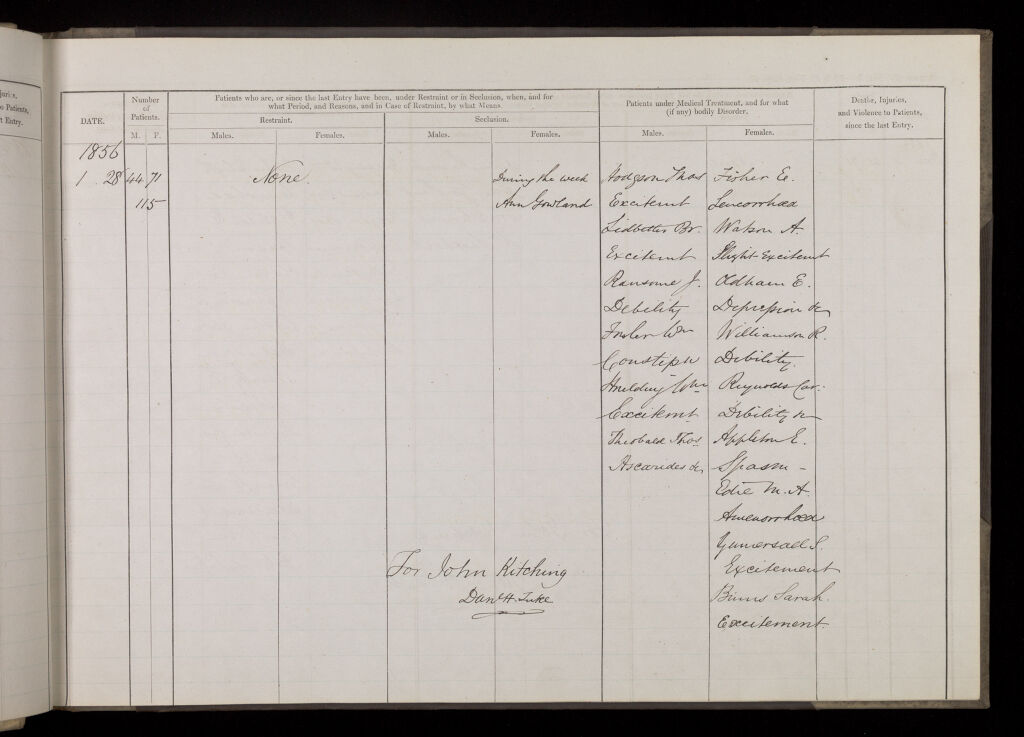 juries,
to Patients,
t Entry.
DATE.
Number
of
Patients.
M. F.
Patients who are, or since the last Entry have been, under Restraint or in Seclusion, when, and for
what Period, and Reasons, and in Case of Restraint, by what Means.
Restraint.
Seclusion.
Males. Females. Males. Females.
Patients under Medical Treatment, and for what
(if any) bodily Disorder.
Males. Females.
Deaths, Injuries,
and Violence to Patients,
since the last Entry.
1856
1 28 44 71 None. During the week Hodgson Thos Fisher E.
115 Ann Gowland Excitemt Leucorrhœa
Lidbetter Br. Watson A.
Excitemt Slight Excitemt
Ransome J. Oldham E.
Debility Depression &c
Wm Williamson R.
Constipn Debility.
Wm Reynolds Car:
Excitemt Debility &c
Theobald Thos Appleton E.
Ascarides &c Spasm -
Edie M. A.
Amenorrhœa
Gumersall S.
For John Kitching Excitement
Danl H. Tuke Binns Sarah.
Excitement.